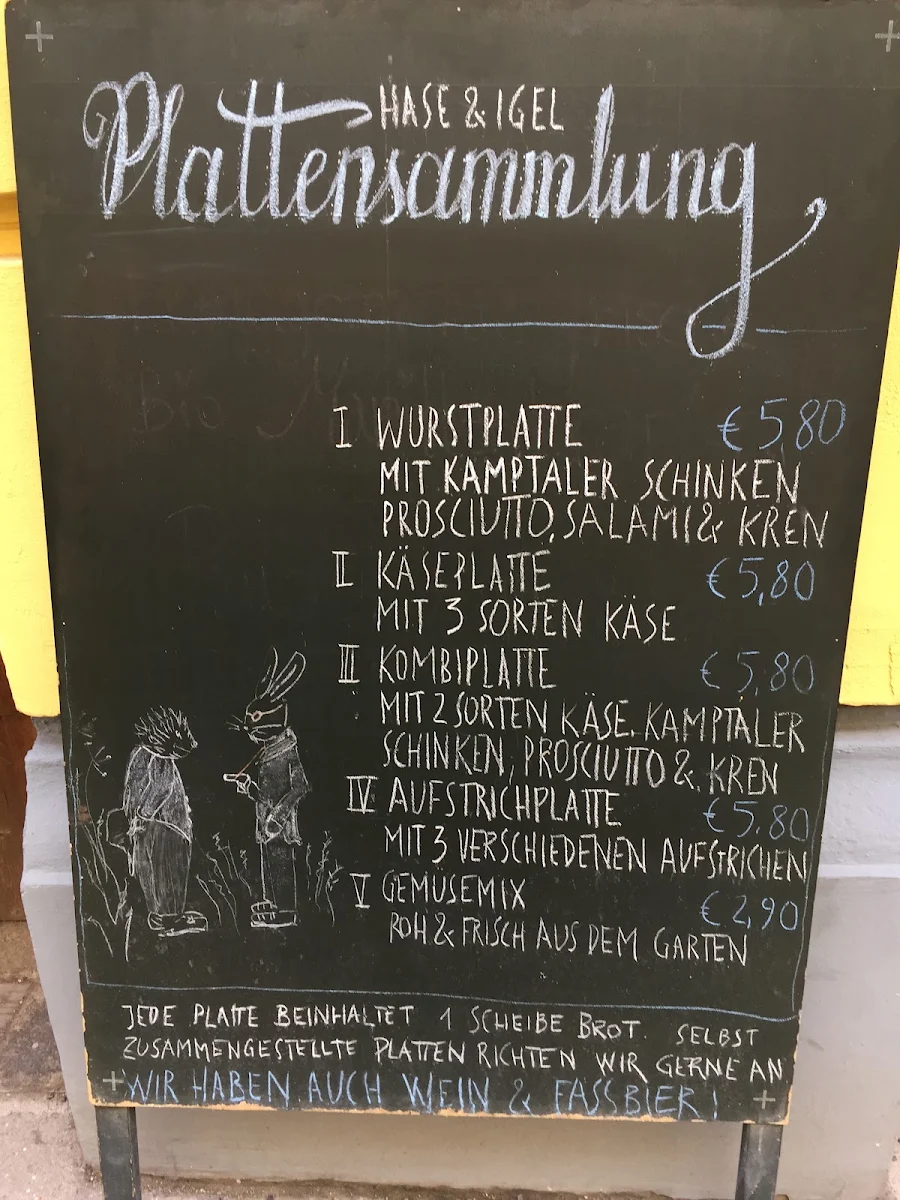 HASE & IGEL
Plattensammlung
I WURSTPLATTE € 5,80
MIT KAMPTALER SCHINKEN
PROSCIUTTO, SALAMI & KREN
II KÄSEPLATTE € 5,80
MIT 3 SORTEN KÄSE
III KOMBIPLATTE € 5,80
MIT 2 SORTEN KÄSE, KAMPTALER
SCHINKEN, PROSCIUTTO & KREN
IV AUFSTRICHPLATTE € 5.80
MIT 3 VERSCHIEDENEN AUFSTRICHEN
V GEMÜSEMIX € 2,90
ROH & FRISCH AUS DEM GARTEN
JEDE PLATTE BEINHALTET 1 SCHEIBE BROT. SELBST
ZUSAMMENGESTELLTE PLATTEN RICHTEN WIR GERNE AN
WIR HABEN AUCH WEIN & FASSBIER!